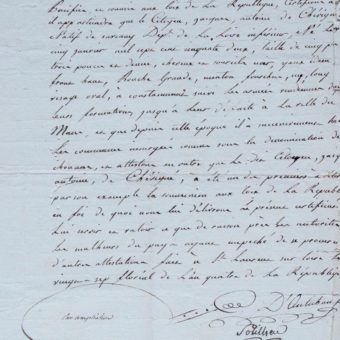 pacifier et soumis aux loix de la République, Certifions à
d'appartiendra que le Citoyen, jacques, antoine de Chévigné,
Natif de Dept de la Loire inférieure, Né Le
cinq janvier mil sept cent cinquante deux, taille de cinq pi
trois pouces et demi, cheveux et sourcils noir, yeux idem
front haut, Bouche Grande, menton fourchu, nez, long
visage oval, à constament suivi les armées
leurs formations, jusqu'à leur déroute à la ville du
Mans, et que depuis cette époque il à
Les communes connues sous la dénomination de
chouans, en attestons en outre que le dit Citoyen, jacq
antoine, de Chévigné, à été un des premiers à
par son exemple la soumission aux loix de la Républi
en foi de quoi nous lui délivrons le présent certificat
Lui servir et valoir à ce que de raison près les autorités
les malheurs du pays ayant empeché de se procurer
d'autres attestations faite à St Laurent sur loire
vingt-sept floréal de L'an quatre de la République
par ampliation
D'Autichamp